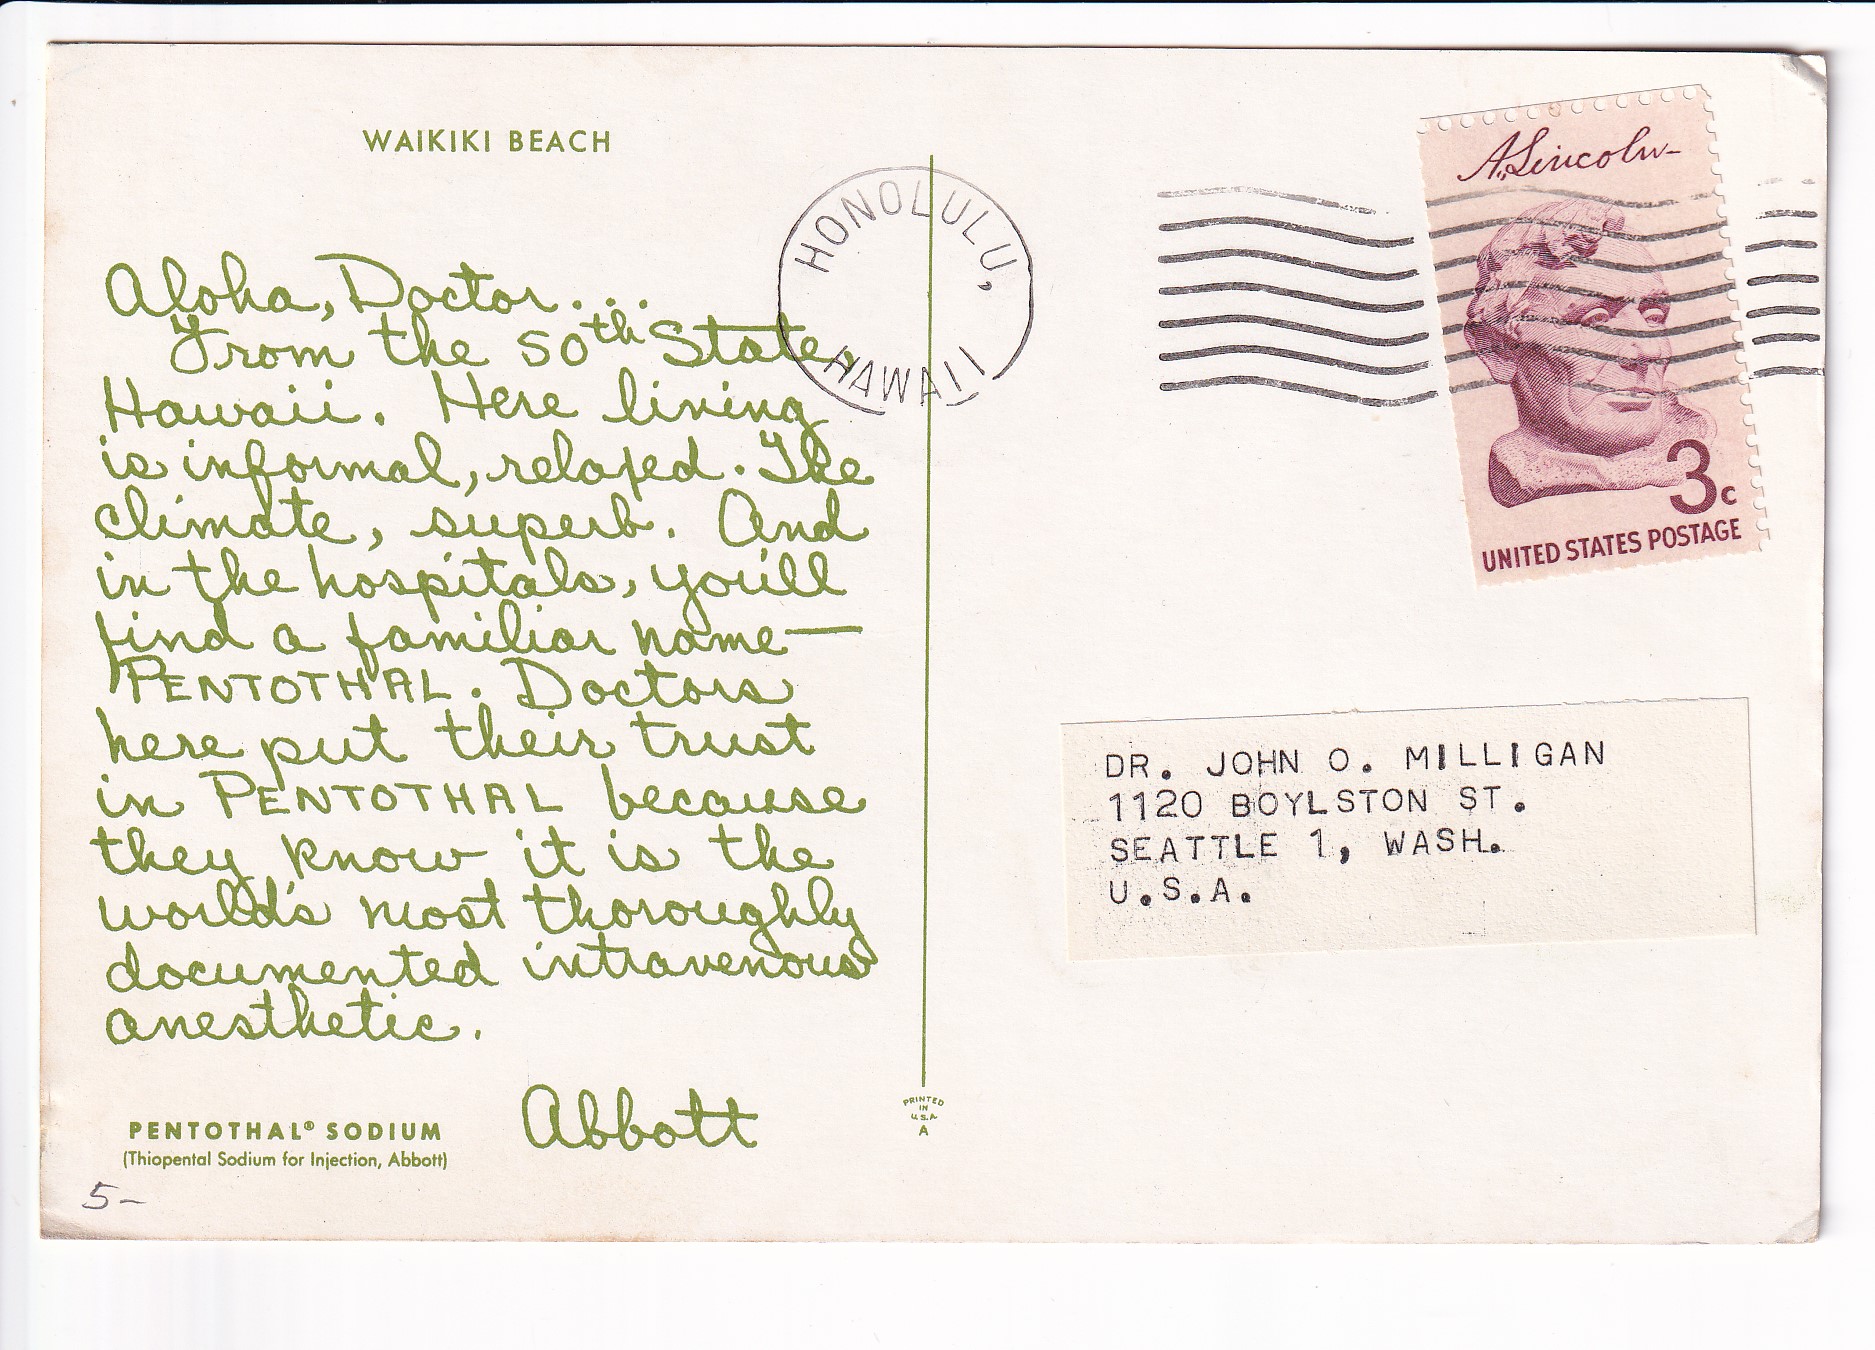 WAIKIKI BEACH
Aloha, Doctor...
From the 50th State,
Hawaii. Here living
is informal, relaxed. The
climate, superb. And
in the hospitals, you'll
find a familiar name—
PENTOTHAL. Doctors
here put their trust
in PENTOTHAL because
they know it is the
world's most thoroughly
documented intravenous
anesthetic.
Abbott
PENTOTHAL® SODIUM
(Thiopental Sodium for Injection, Abbott)
5-
PRINTED
IN
U.S.A.
A
HONOLULU,
HAWAII
A. Lincoln
3c
UNITED STATES POSTAGE
DR. JOHN O. MILLIGAN
1120 BOYLSTON ST.
SEATTLE 1, WASH.
U.S.A.